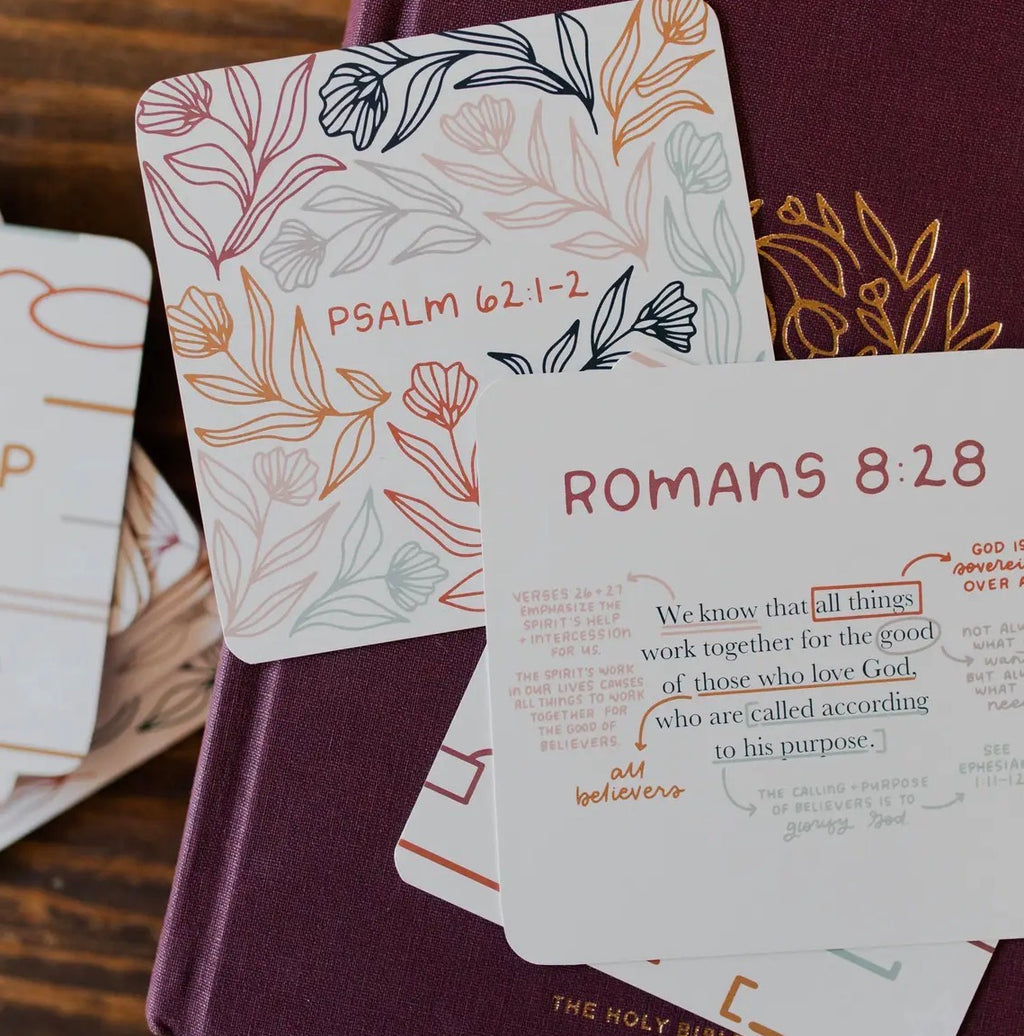 PSALM 62:1-2
P
ROMANS 8:28
GOD IS
OVER A
VERSES 26 + 27
EMPHASIZE THE
SPIRIT'S HELP
+ INTERCESSION
FOR US.
THE SPIRIT'S WORK
IN OUR LIVES CAUSES
ALL THINGS TO WORK
TOGETHER FOR
THE GOOD OF
BELIEVERS.
We know that all things
work together for the good
of those who love God,
who are called according
to his purpose.
NOT AL
WHAT
wan
BUT AL
WHAT
nee
all
believers
THE CALLING + PURPOSE
OF BELIEVERS IS TO
glorify God
SEE
EPHESIA
1:11-12
THE HOLY BIB